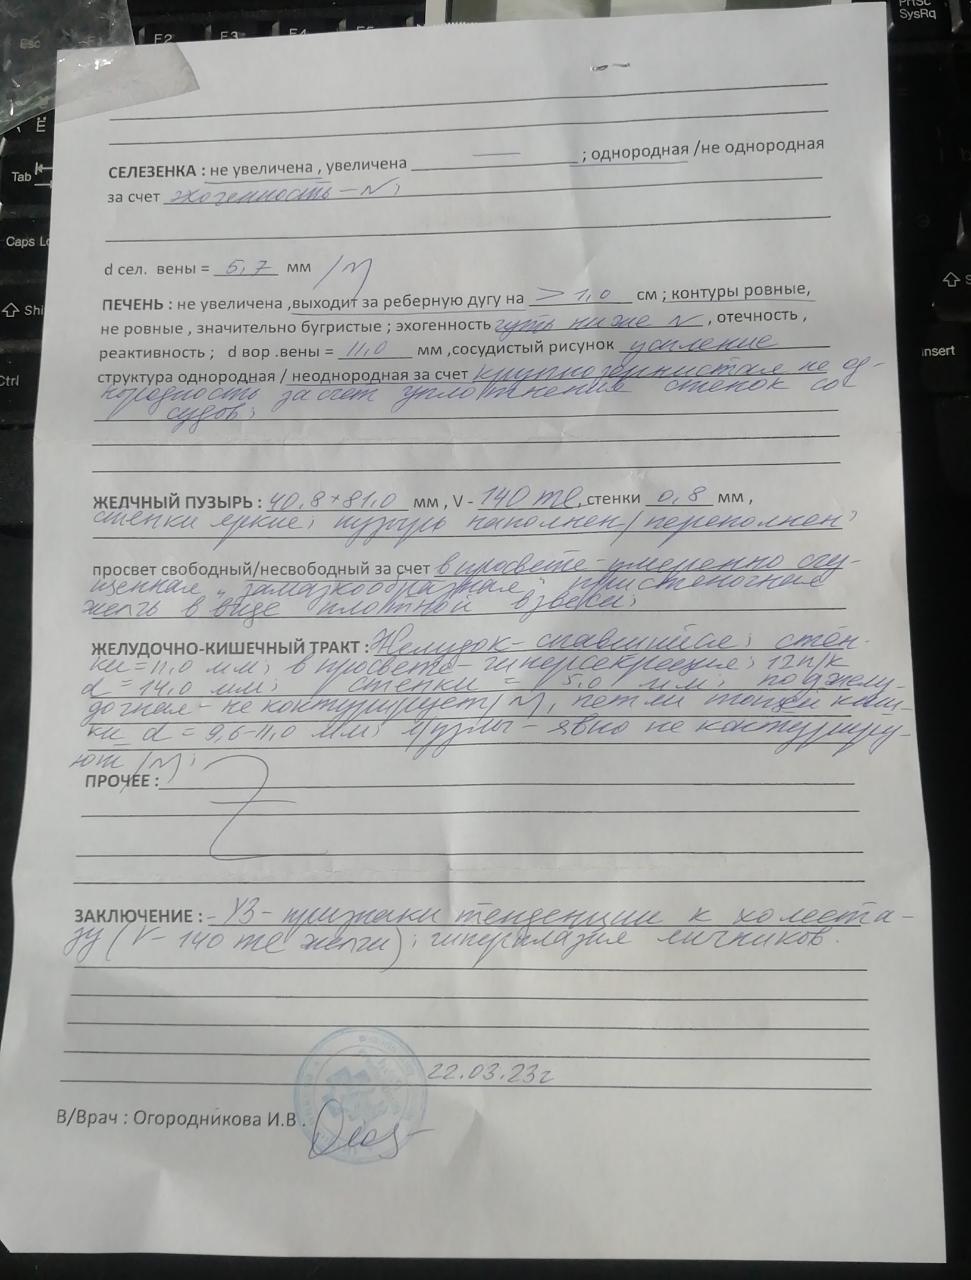 СЕЛЕЗЕНКА : не увеличена , увеличена — ; однородная /не однородная
за счет эхогенность – N;
d сел. вены = 5,7 мм /N
ПЕЧЕНЬ : не увеличена ,выходит за реберную дугу на > 1,0 см ; контуры ровные,
не ровные , значительно бугристые ; эхогенность чуть ниже N , отечность ,
реактивность ; d вор .вены = 11,0 мм ,сосудистый рисунок усиление
структура однородная / неоднородная за счет крупнозернистая не од-
нородность за счет уплотнения стенок со
судов;
ЖЕЛЧНЫЙ ПУЗЫРЬ : 40,8*81,0 мм , V - 140 ml ,стенки 0,8 мм ,
стенки яркие; пузырь наполнен/переполнен;
просвет свободный/несвободный за счет в просвете – умеренно сгу-
щенная „замазкообразная" пристеночная
желчь в виде плотной взвеси;
ЖЕЛУДОЧНО-КИШЕЧНЫЙ ТРАКТ : Желудок – спавшийся; стен-
ки = 11,0 мм; в просвете – гиперсекреция; 12п/к
d = 14,0 мм; стенки = 5,0 мм; поджелу-
дочная – не контурирует/N; петли тощей киш-
ки d = 9,6-11,0 мм; л/узлы – явно не контуриру-
ют /N;
ПРОЧЕЕ : Z
ЗАКЛЮЧЕНИЕ : - УЗ – признаки тенденции к холеста-
зу (V – 140 ml желчи); гиперплазия яичников.
22.03.23г
В/Врач : Огородникова И.В .
Esc
F1
F2
F3
F4
PrtSc
SysRq
Ё
Tab
Caps Lo
Shi
Ctrl
Shi
Insert